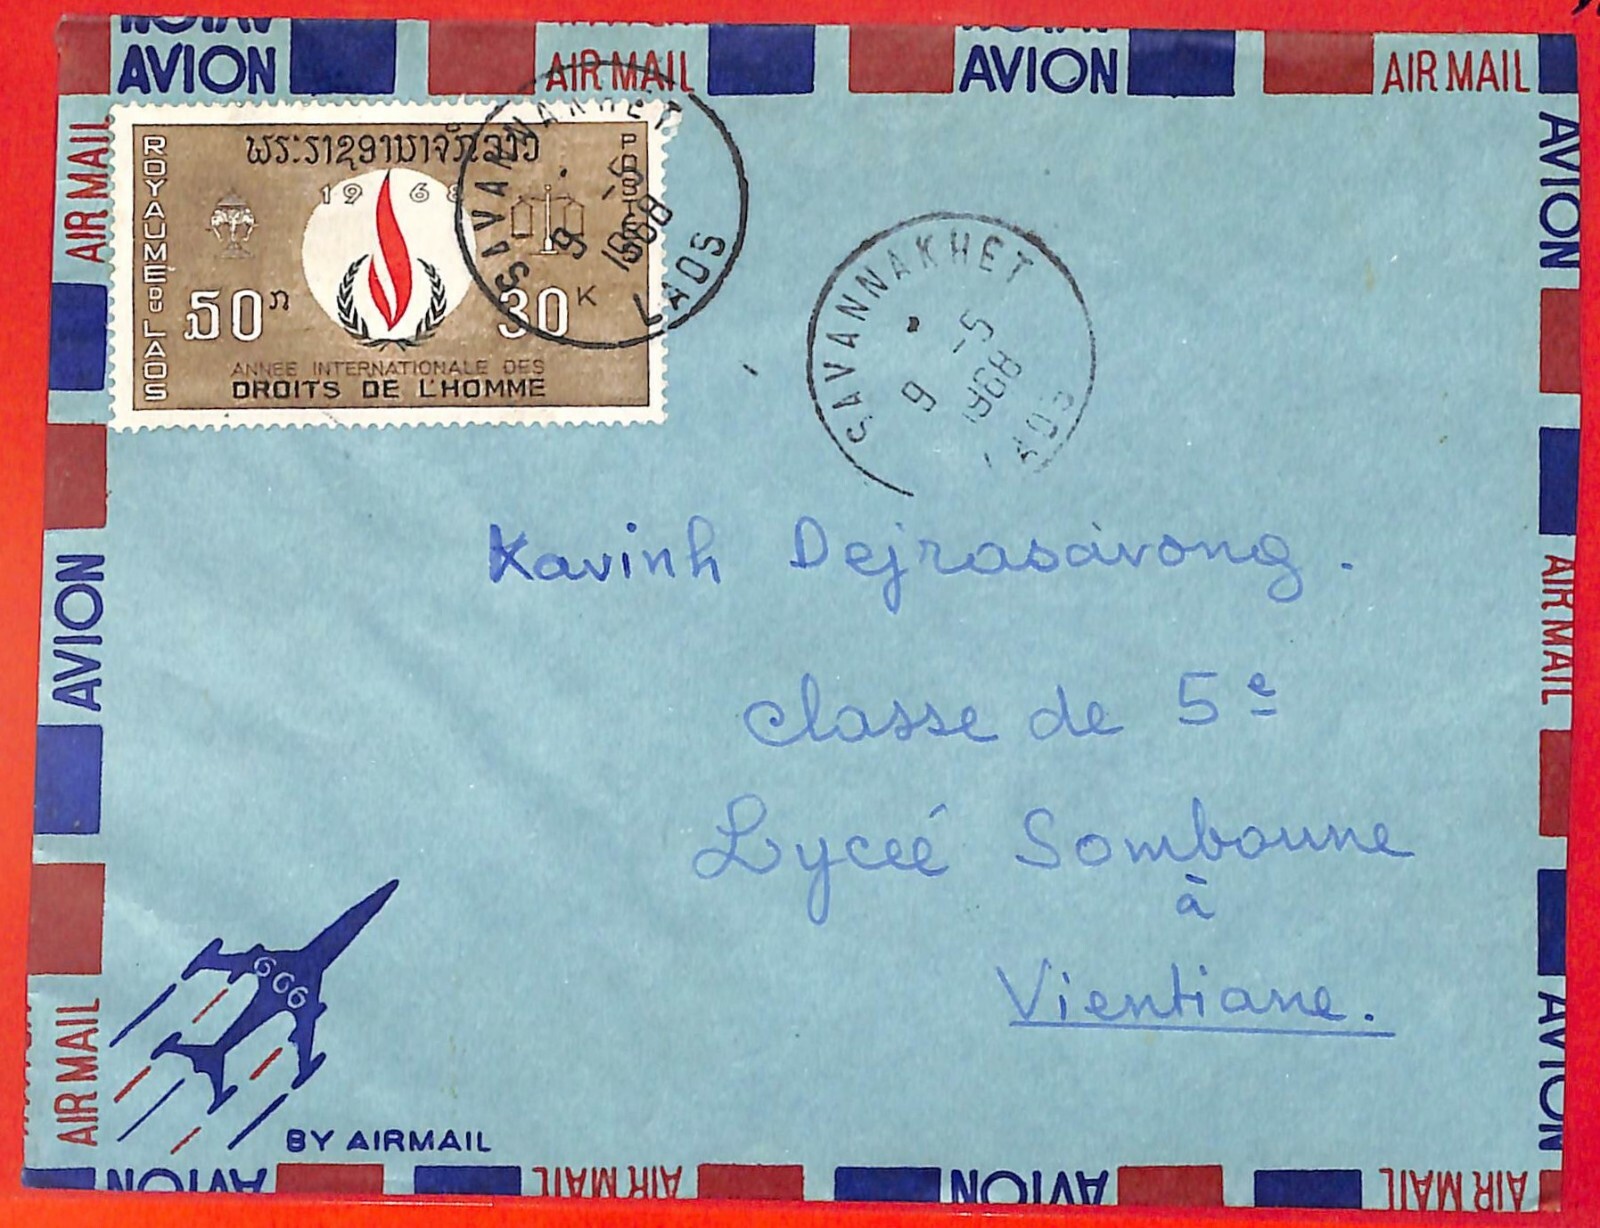 AVION AIR MAIL AVION AIR MAIL
ພຣະຣາຊອານາຈັກລາວ
ROYAUME DU LAOS
POSTES
1968
໓໐ ກ
30 K
ANNEE INTERNATIONALE DES
DROITS DE L'HOMME
SAVANNAKHET
9 -5
1968
LAOS
SAVANNAKHET
9 -5
1968
LAOS
Kavinh Dejrasàvong.
classe de 5e
Lyceé Somboune
à
Vientiane.
606
BY AIRMAIL
AIR MAIL
AVION
AIR MAIL
AVION
AIR MAIL
AVION
AVION AIR MAIL AVION AIR MAIL